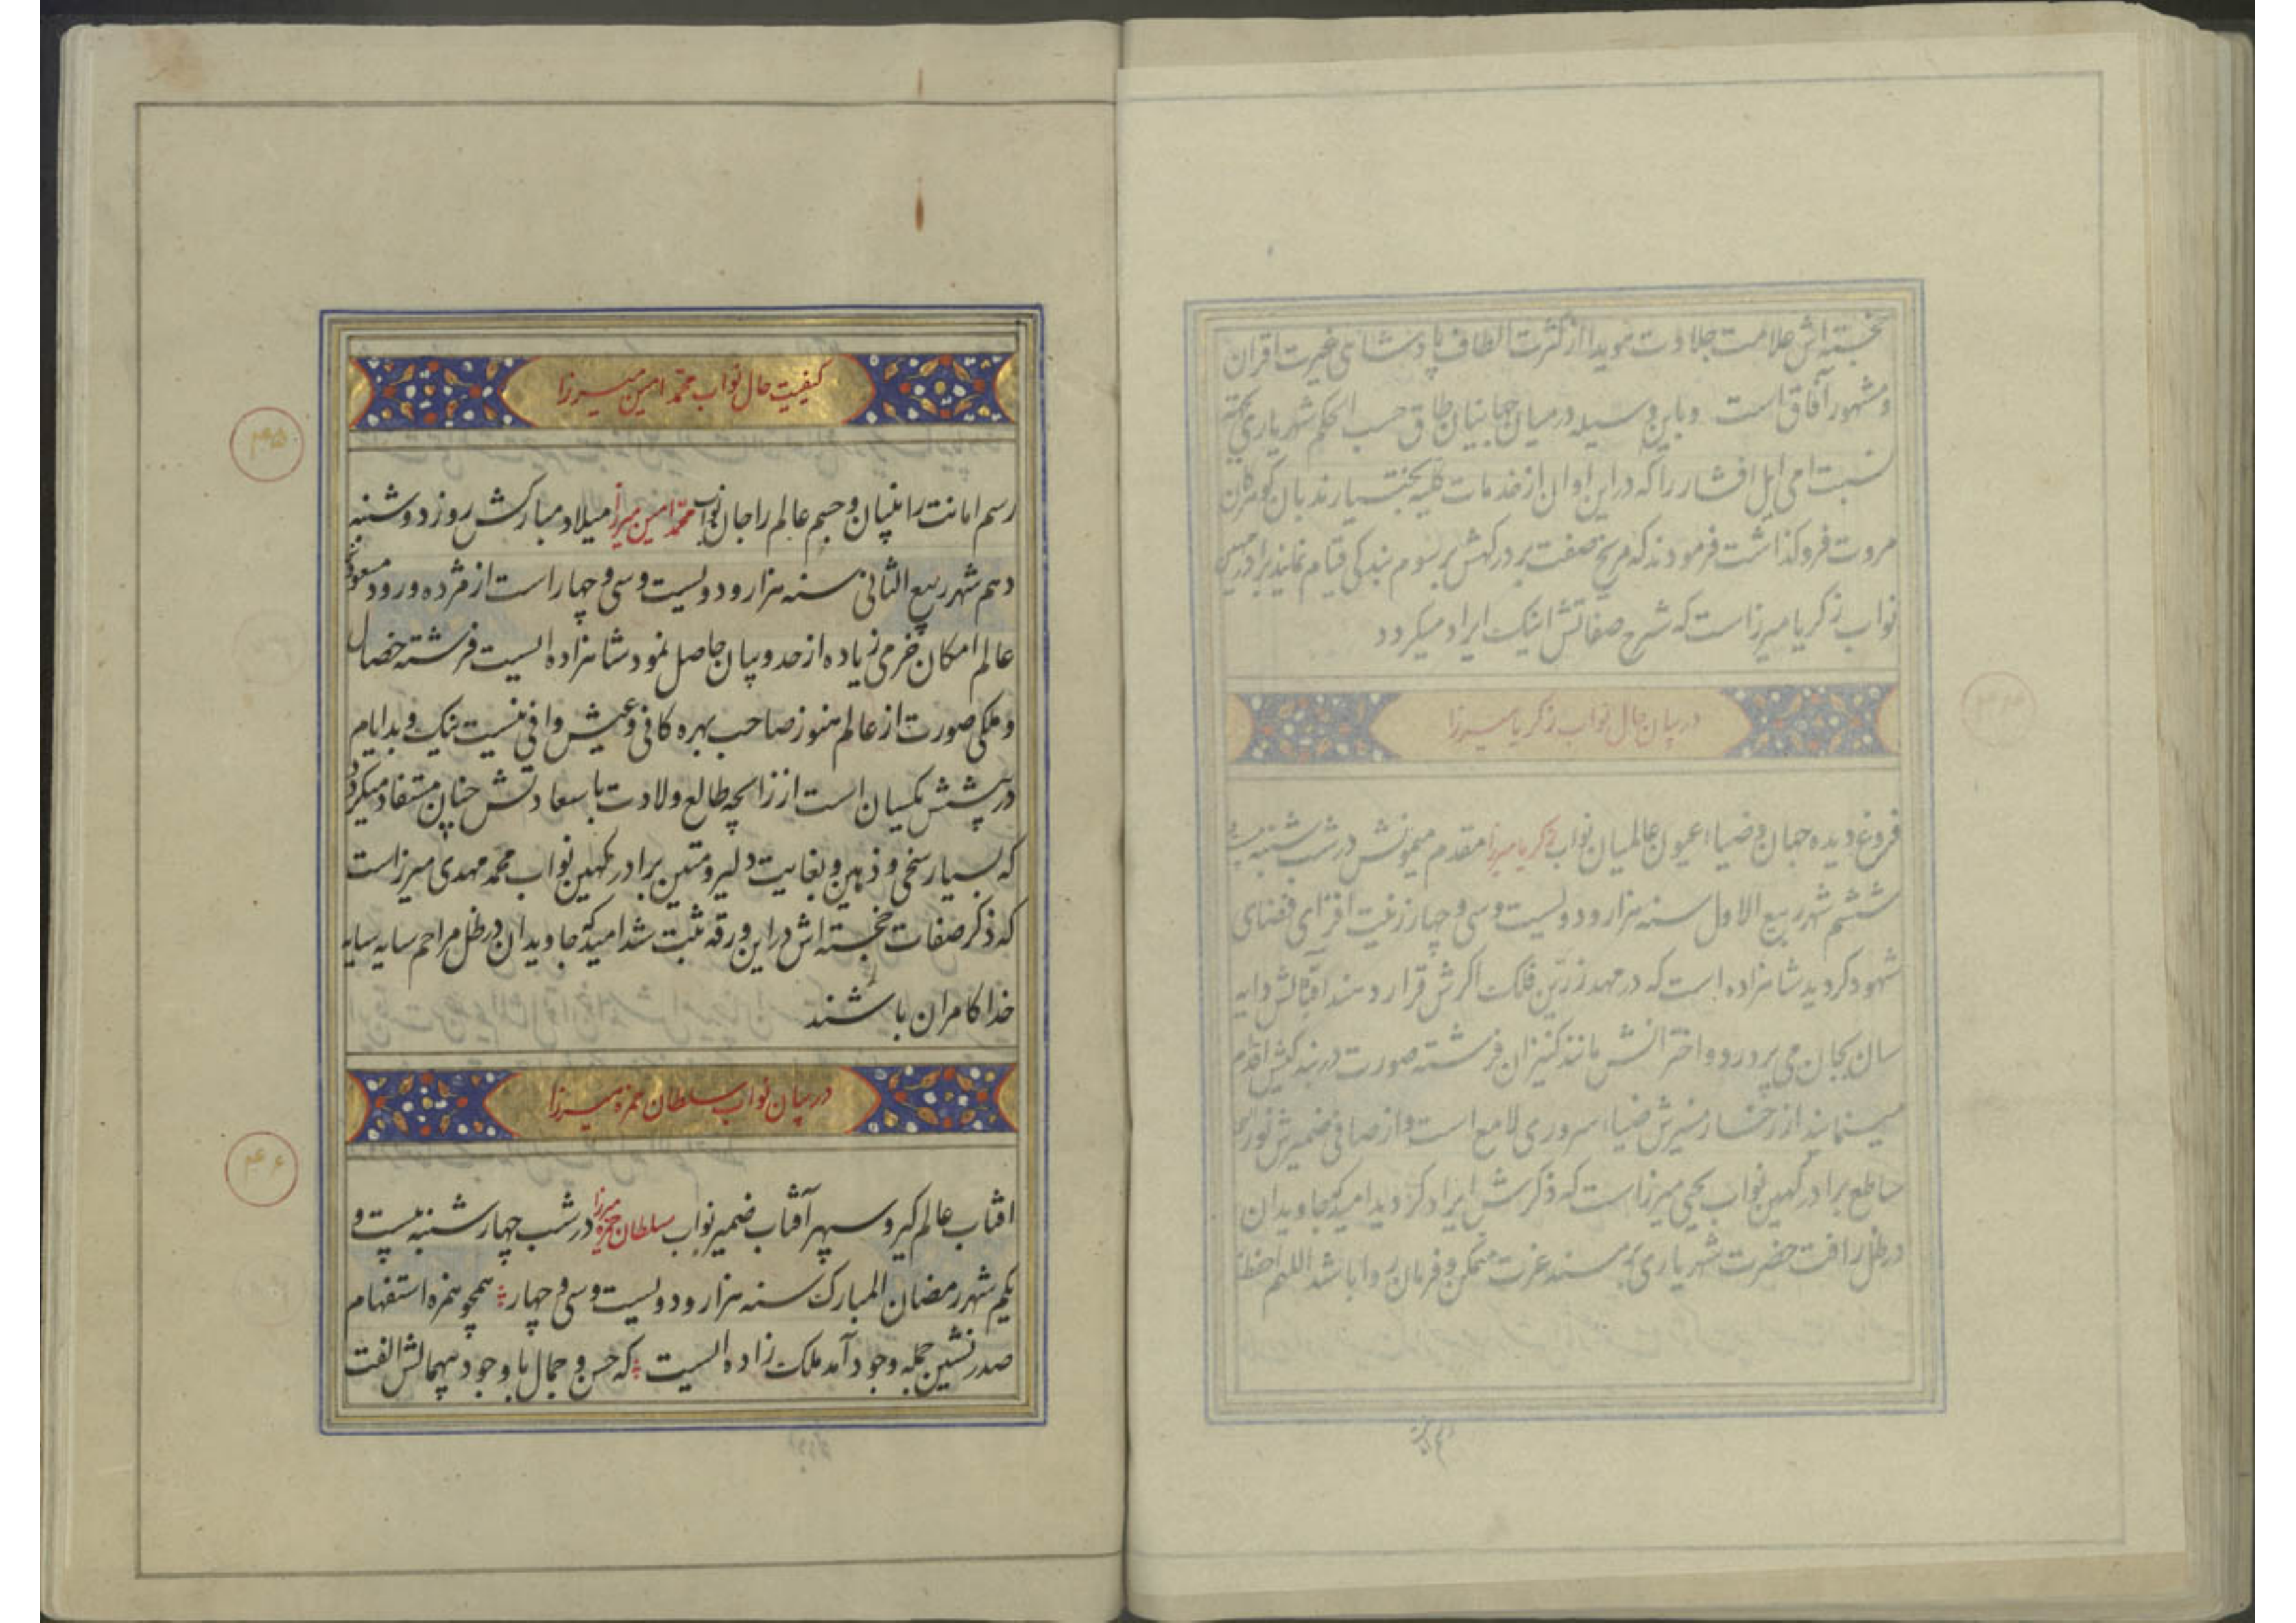 خجسته اش علامت جلادت هویدا از کثرت الطاف پادشاهی غیرت اقران
و مشهور آفاق است و باین وسیله در میان جهانیان طاق حسب الحکم شهریاری
نسبت امی ایل افشار را که در این اوان از خدمات کلیه
مروت فروکذاشت فرمودند که مریخ صفت بر درکهش برسوم بندکی قیام نمایند برادر
نواب زکریا میرزاست که شرح صفاتش اینک ایراد میکردد
در بیان حال نواب زکریا میرزا
۴۴
فروغ دیده جهان و ضیاء عیون عالمیان نواب زکریا میرزا مقدم میمونش در شب شنبه
ششم شهر ربیع الاول سنه هزار و دویست و سی و چهار زینت افزای فضای
شهود کردید شاهزاده است که در مهد زرین فلک اکرش قرار دهند اقبالش دایه
سان بجان می پرورد و اخترانش مانند کنیزان فرشته صورت در بندکیش اقدام
مینمایند از رخسار منیرش ضیاء سروری لامع است و از صافی ضمیرش نور
ساطع برادر کهین نواب یحیی میرزاست که ذکرش ایراد کردید امید که جاویدان
در ظل رافت حضرت شهریاری بر مسند عزت متمکن و فرمان روا باشد اللهم احفظ
کیفیت حال نواب محمد امین میرزا
۴۵
رسم امانت را بنیان و جسم عالم را جان نواب محمد امین میرزا میلاد مبارکش روز دوشنبه
دهم شهر ربیع الثانی سنه هزار و دویست و سی و چهار است از مژده ورود مسعودش
عالم امکان خرمی زیاده از حد و بیان حاصل نمود شاهزاده ایست فرشته خصال
و ملکی صورت از عالم هنوز صاحب بهره کافی و عیش وافی نیست نیک و بد ایام
در پیشش یکسان است از زایچه طالع ولادت با سعادتش چنان مستفاد میکردد
که بسیار سخی و ذهین و بغایت دلیر و متین برادر کهین نواب محمد مهدی میرزاست
که ذکر صفات خجسته اش در این ورقه ثبت شد امید که جاویدان در ظل مراحم سایه سایه
خدا کامران باشند
در بیان نواب سلطان حمزه میرزا
۴۶
افتاب عالم کیر و سپهر آفتاب ضمیر نواب سلطان حمزه میرزا در شب چهارشنبه بیست و
یکم شهر رمضان المبارک سنه هزار و دویست و سی و چهار همچو همزه استفهام
صدر نشین جمله وجود آمد ملک زاده ایست که حسن و جمال با وجود بیهمالش الفت